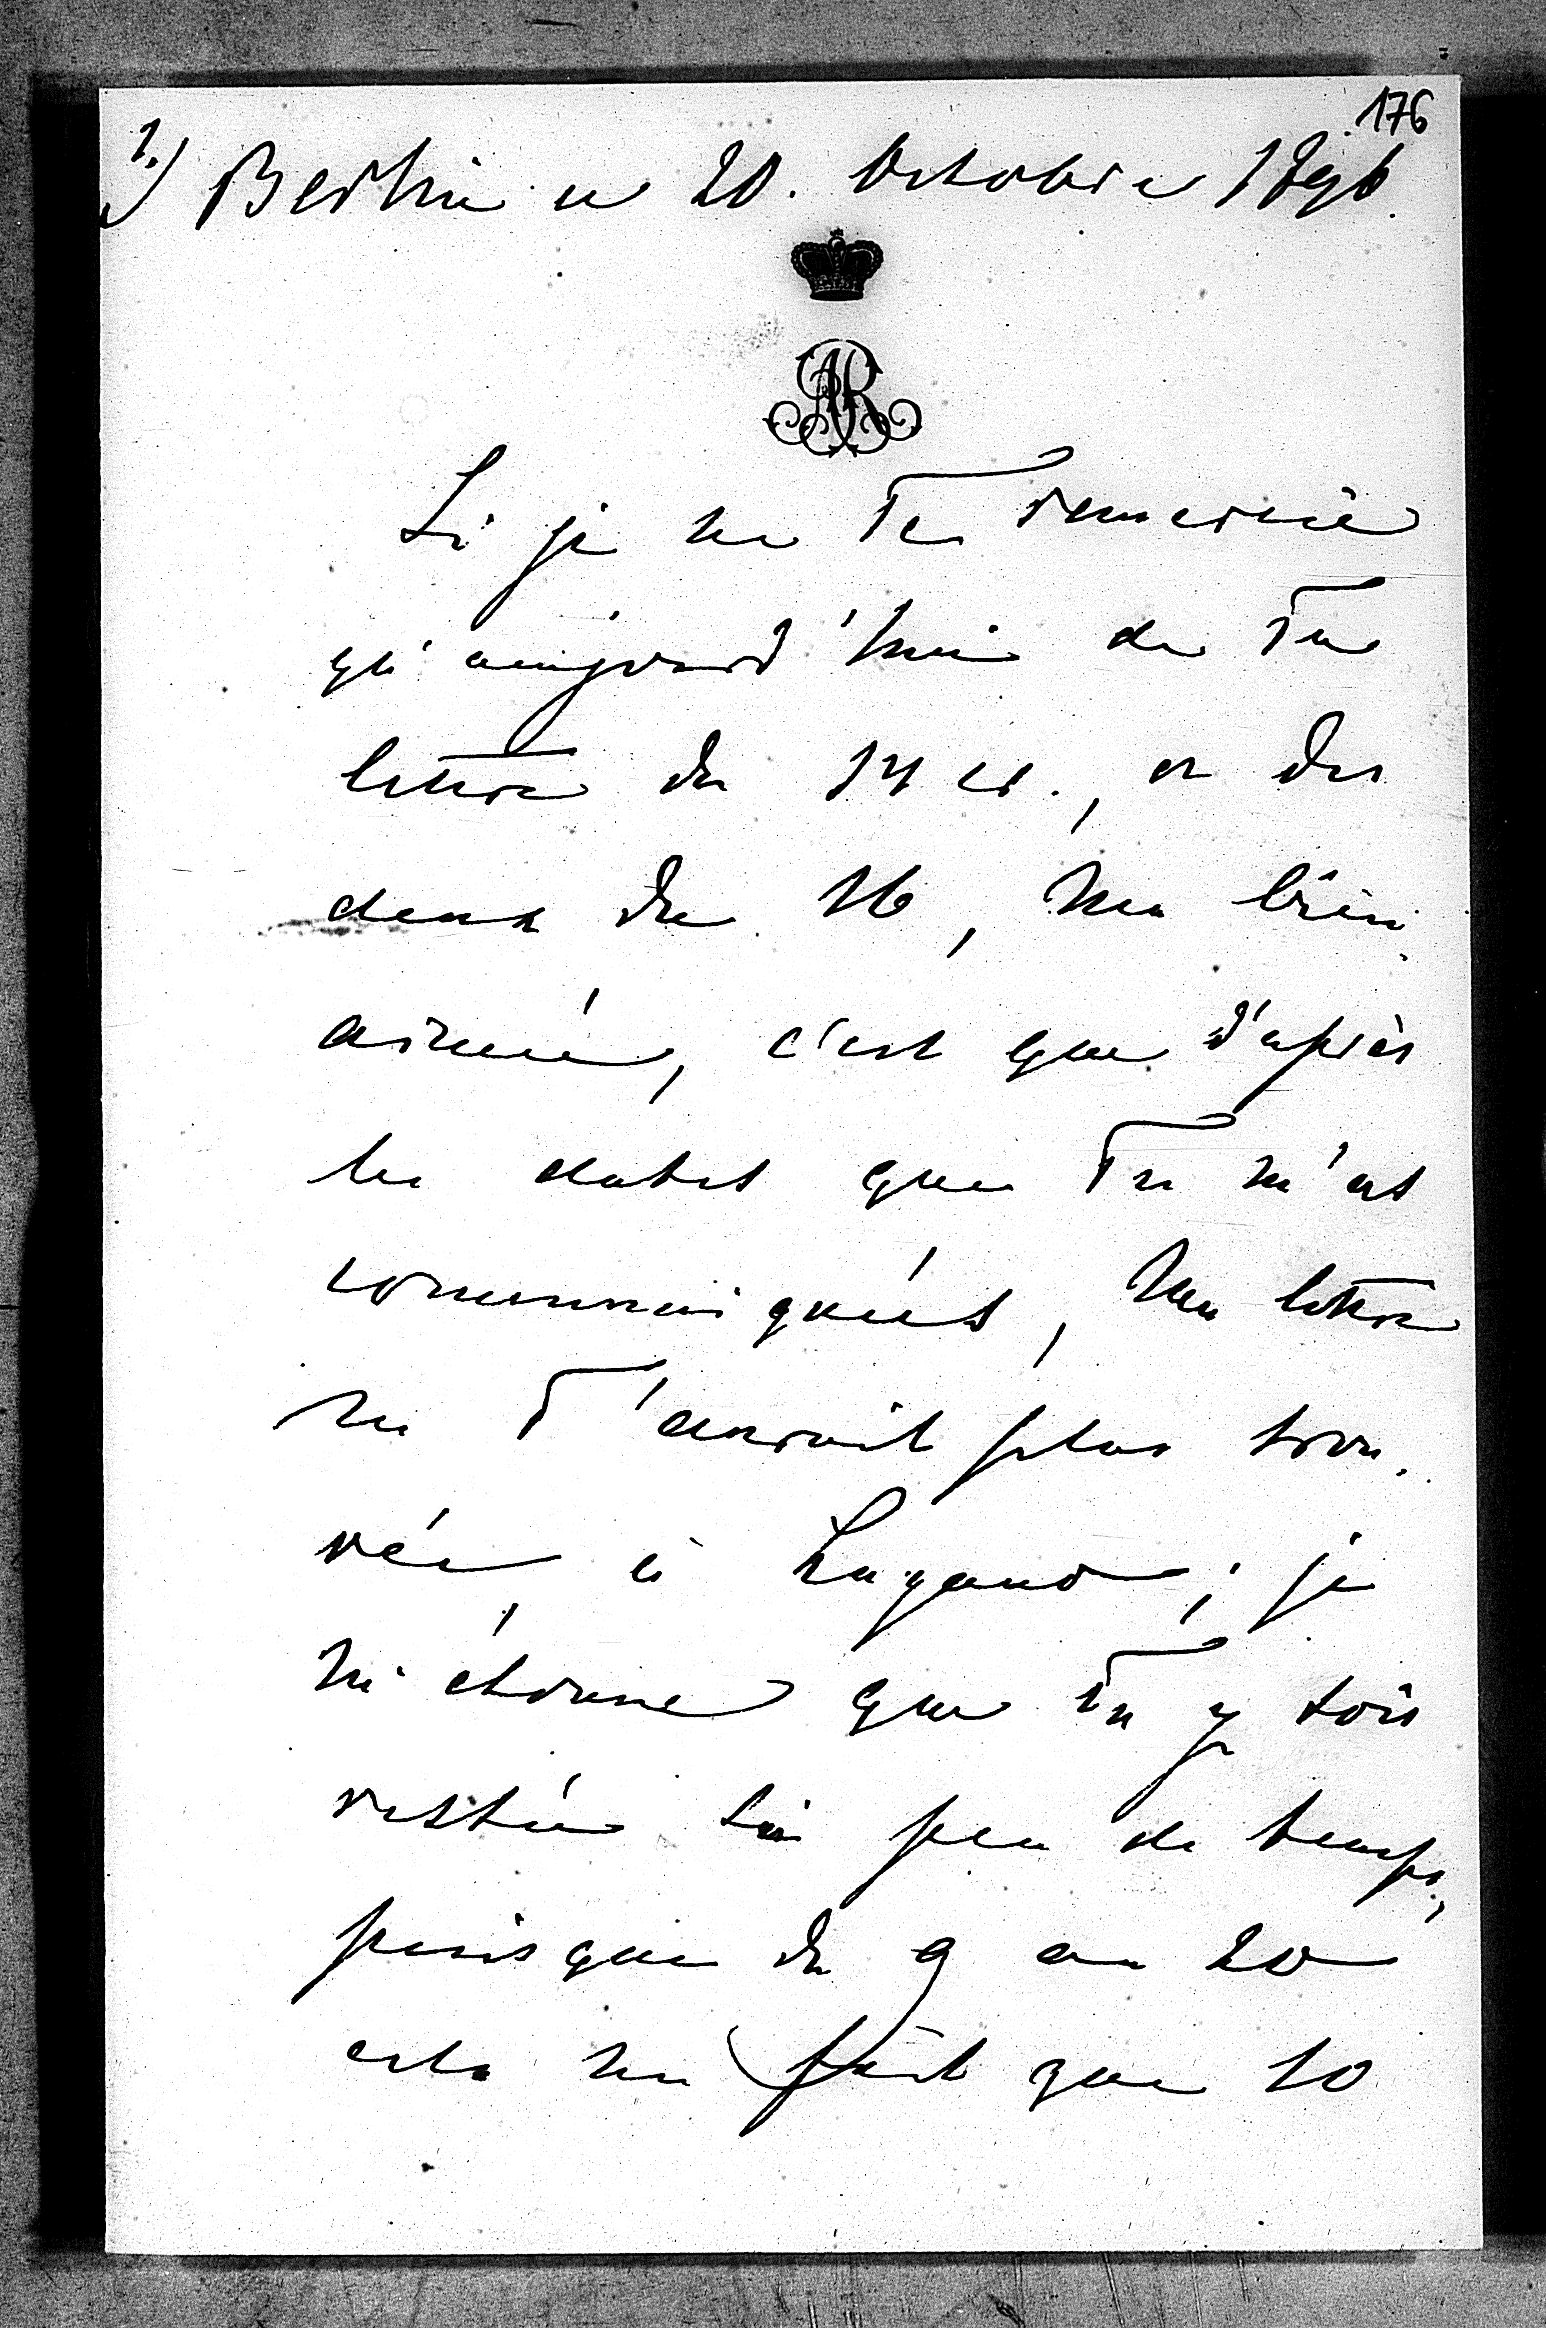 176
1.) Berlin ce 20. Octobre 1896.
AR
Si je ne Te remercie
qu'aujourd'hui de Ta
lettre du 14 cr., et des
deux du 16, ma bien-
aimée, c'est que d'après
les dates que Tu m'as
communiqués, ma lettre
ne T'aurait plus trou-
vée à Lugano; je
m'étonne que Tu y sois
restée si peu de temps,
puisque du 9 au 20
cela ne fait que 10